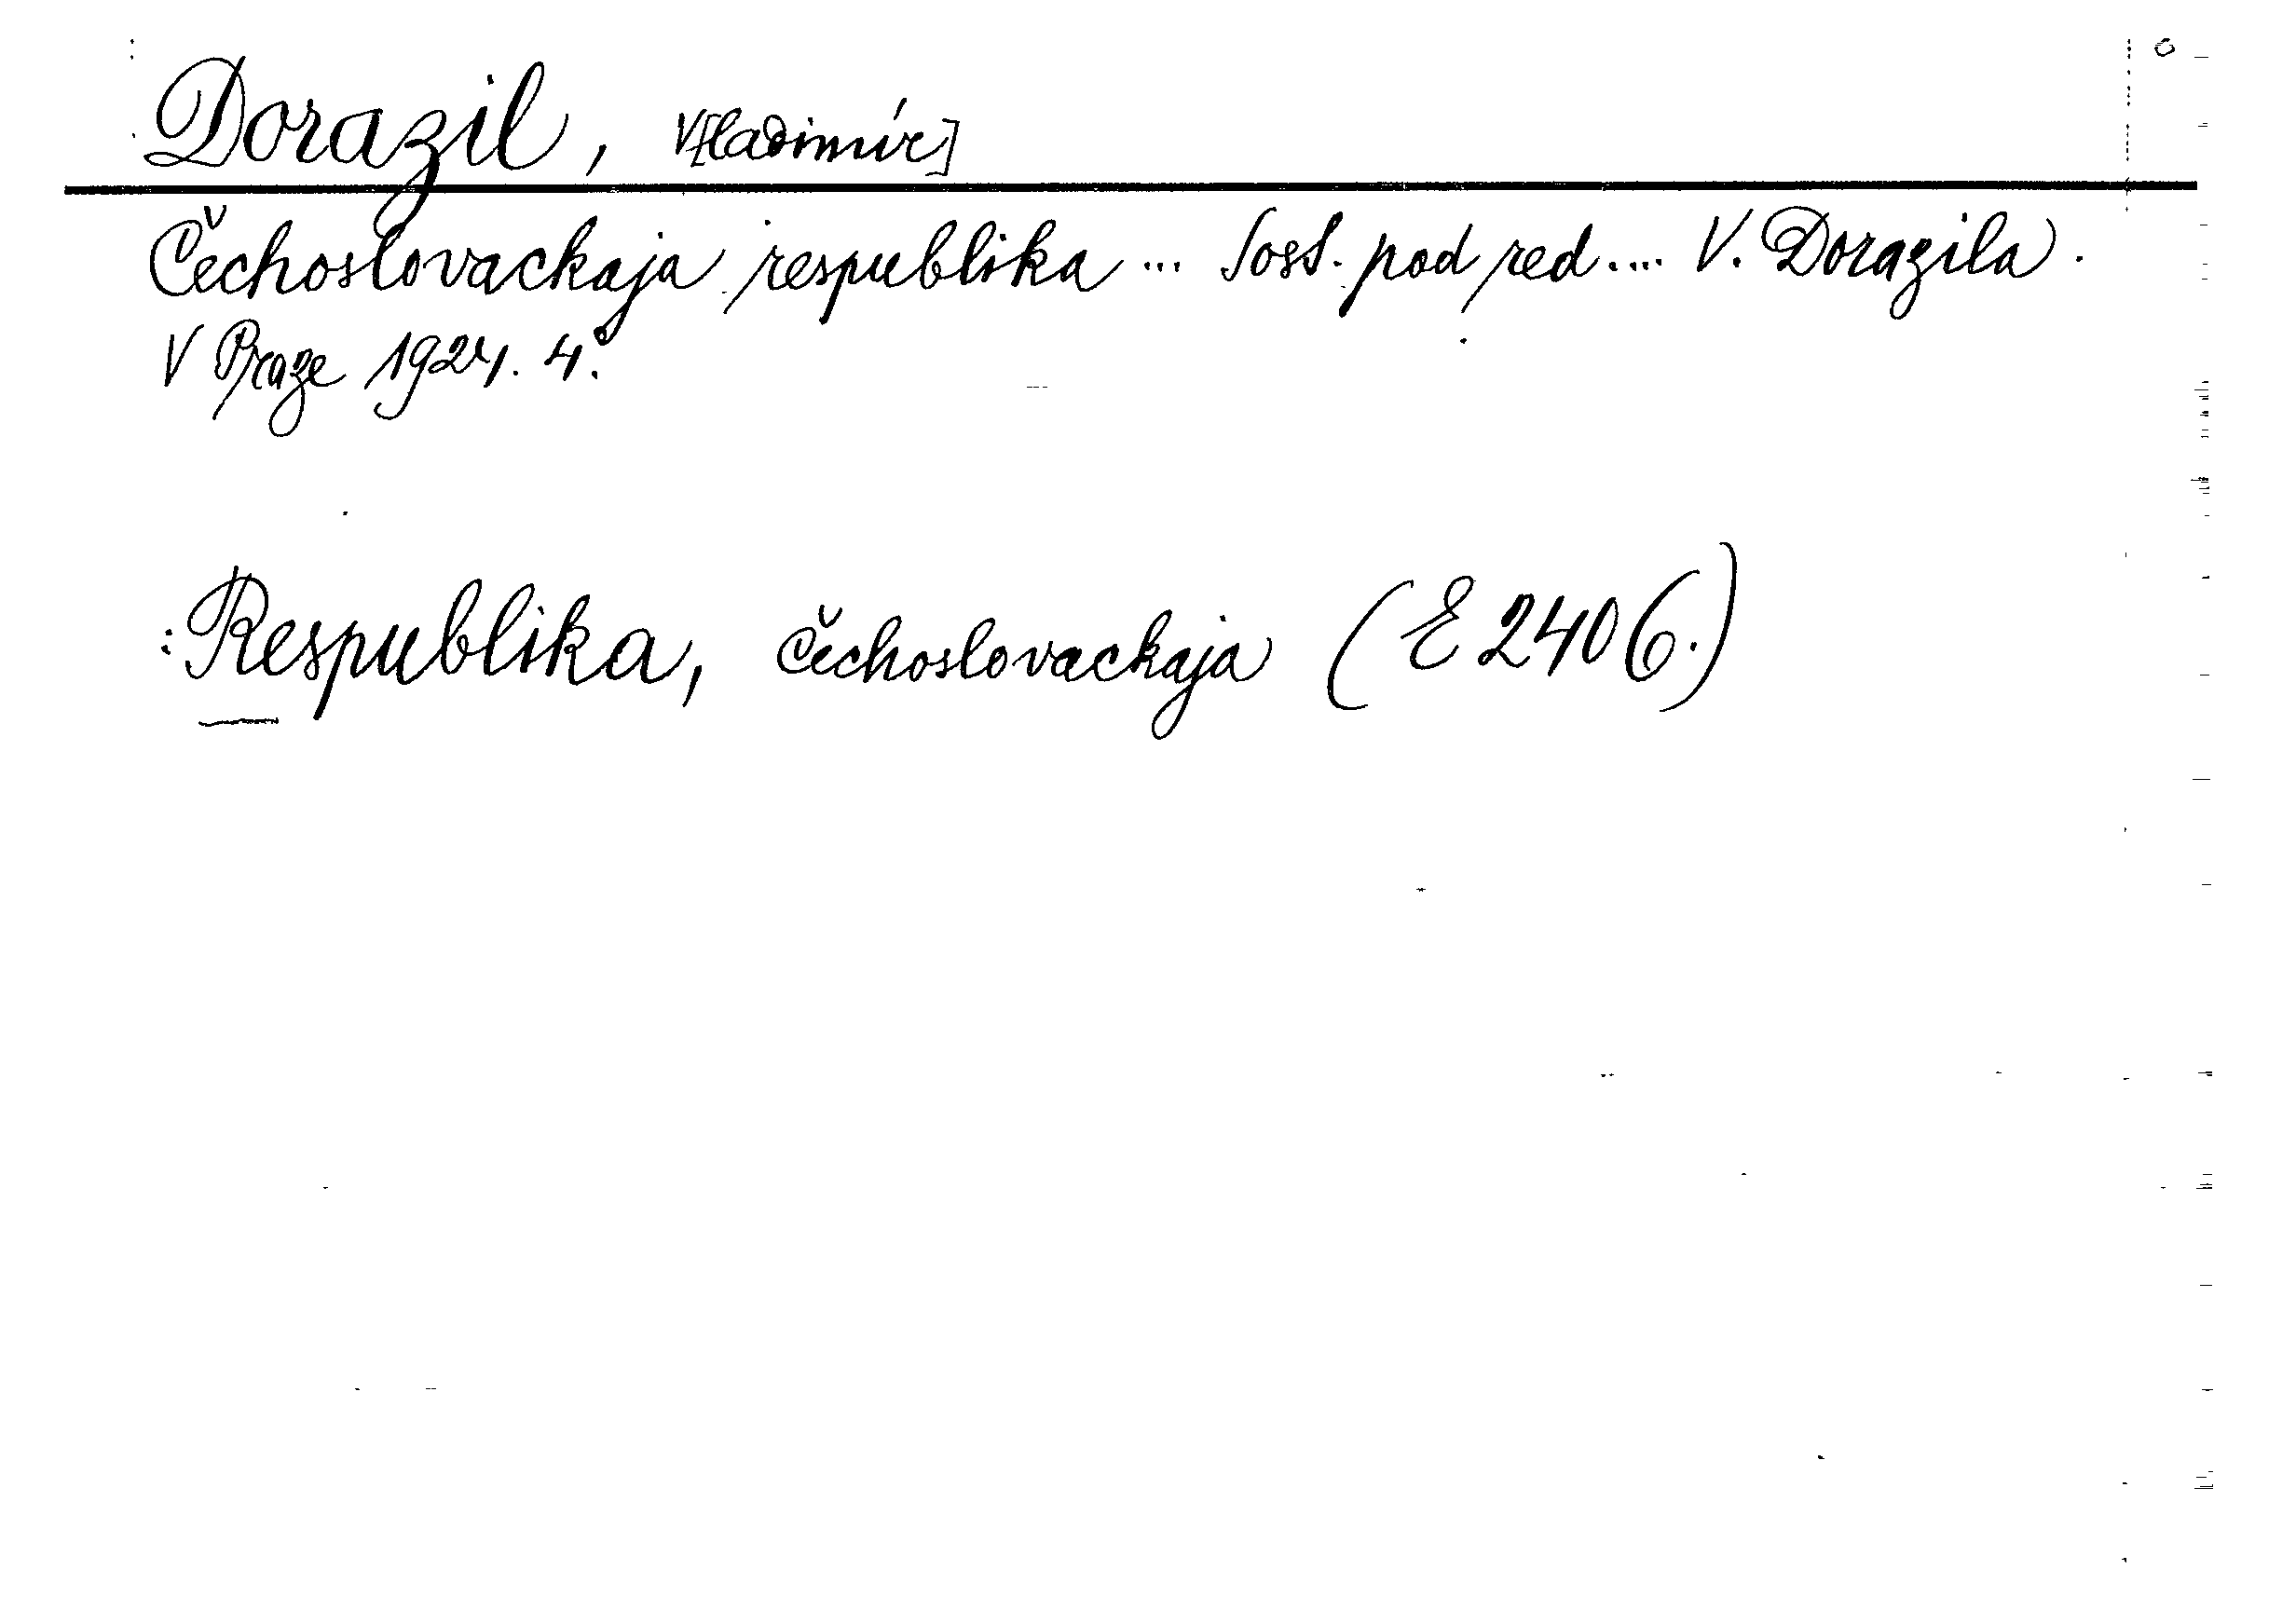 Dorazil, V[ladimír]
Čechoslovackaja respublika ... Sost. pod red. ... V. Dorazila.
V Praze 1924. 4°.
: Respublika, čechoslovackaja (E 2406.)